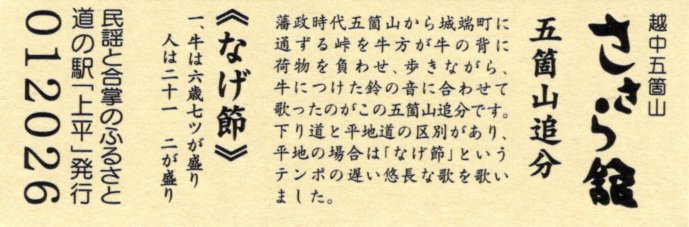 越中五箇山
ささら館
五箇山追分
藩政時代五箇山から城端町に
通ずる峠を牛方が牛の背に
荷物を負わせ、歩きながら、
牛につけた鈴の音に合わせて
歌ったのがこの五箇山追分です。
下り道と平地道の区別があり、
平地の場合は「なげ節」という
テンポの遅い悠長な歌を歌い
ました。
《なげ節》
一、牛は六歳七ツが盛り
人は二十一　二が盛り
民謡と合掌のふるさと
道の駅「上平」発行
012026